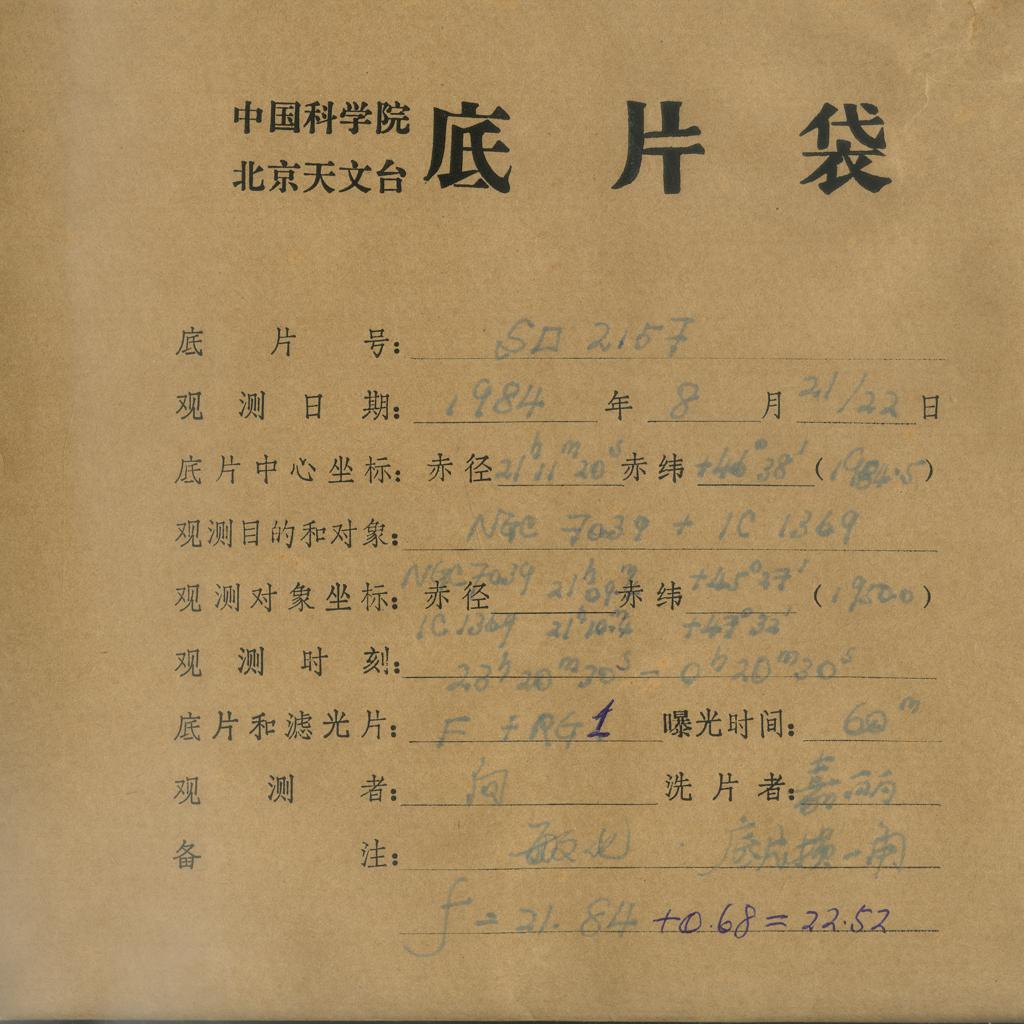 中国科学院
北京天文台
底片袋
底片号: SD 2157
观测日期: 1984 年 8 月 21/22 日
底片中心坐标: 赤径 21ʰ11ᵐ20ˢ 赤纬 +46°38′ (1984.5)
观测目的和对象: NGC 7039 + IC 1369
观测对象坐标: 赤径 赤纬 (1950.0)
NGC 7039 21ʰ09ᵐ +45°27′
IC 1369 21ʰ10ᵐ.4 +47°32′
观测时刻: 23ʰ20ᵐ30ˢ — 0ʰ20ᵐ30ˢ
底片和滤光片: F + RG1 曝光时间: 60ᵐ
观测者: 向 洗片者: 嘉丽
备注: 敏化 · 底片损一角
f = 21.84 +0.68 = 22.52